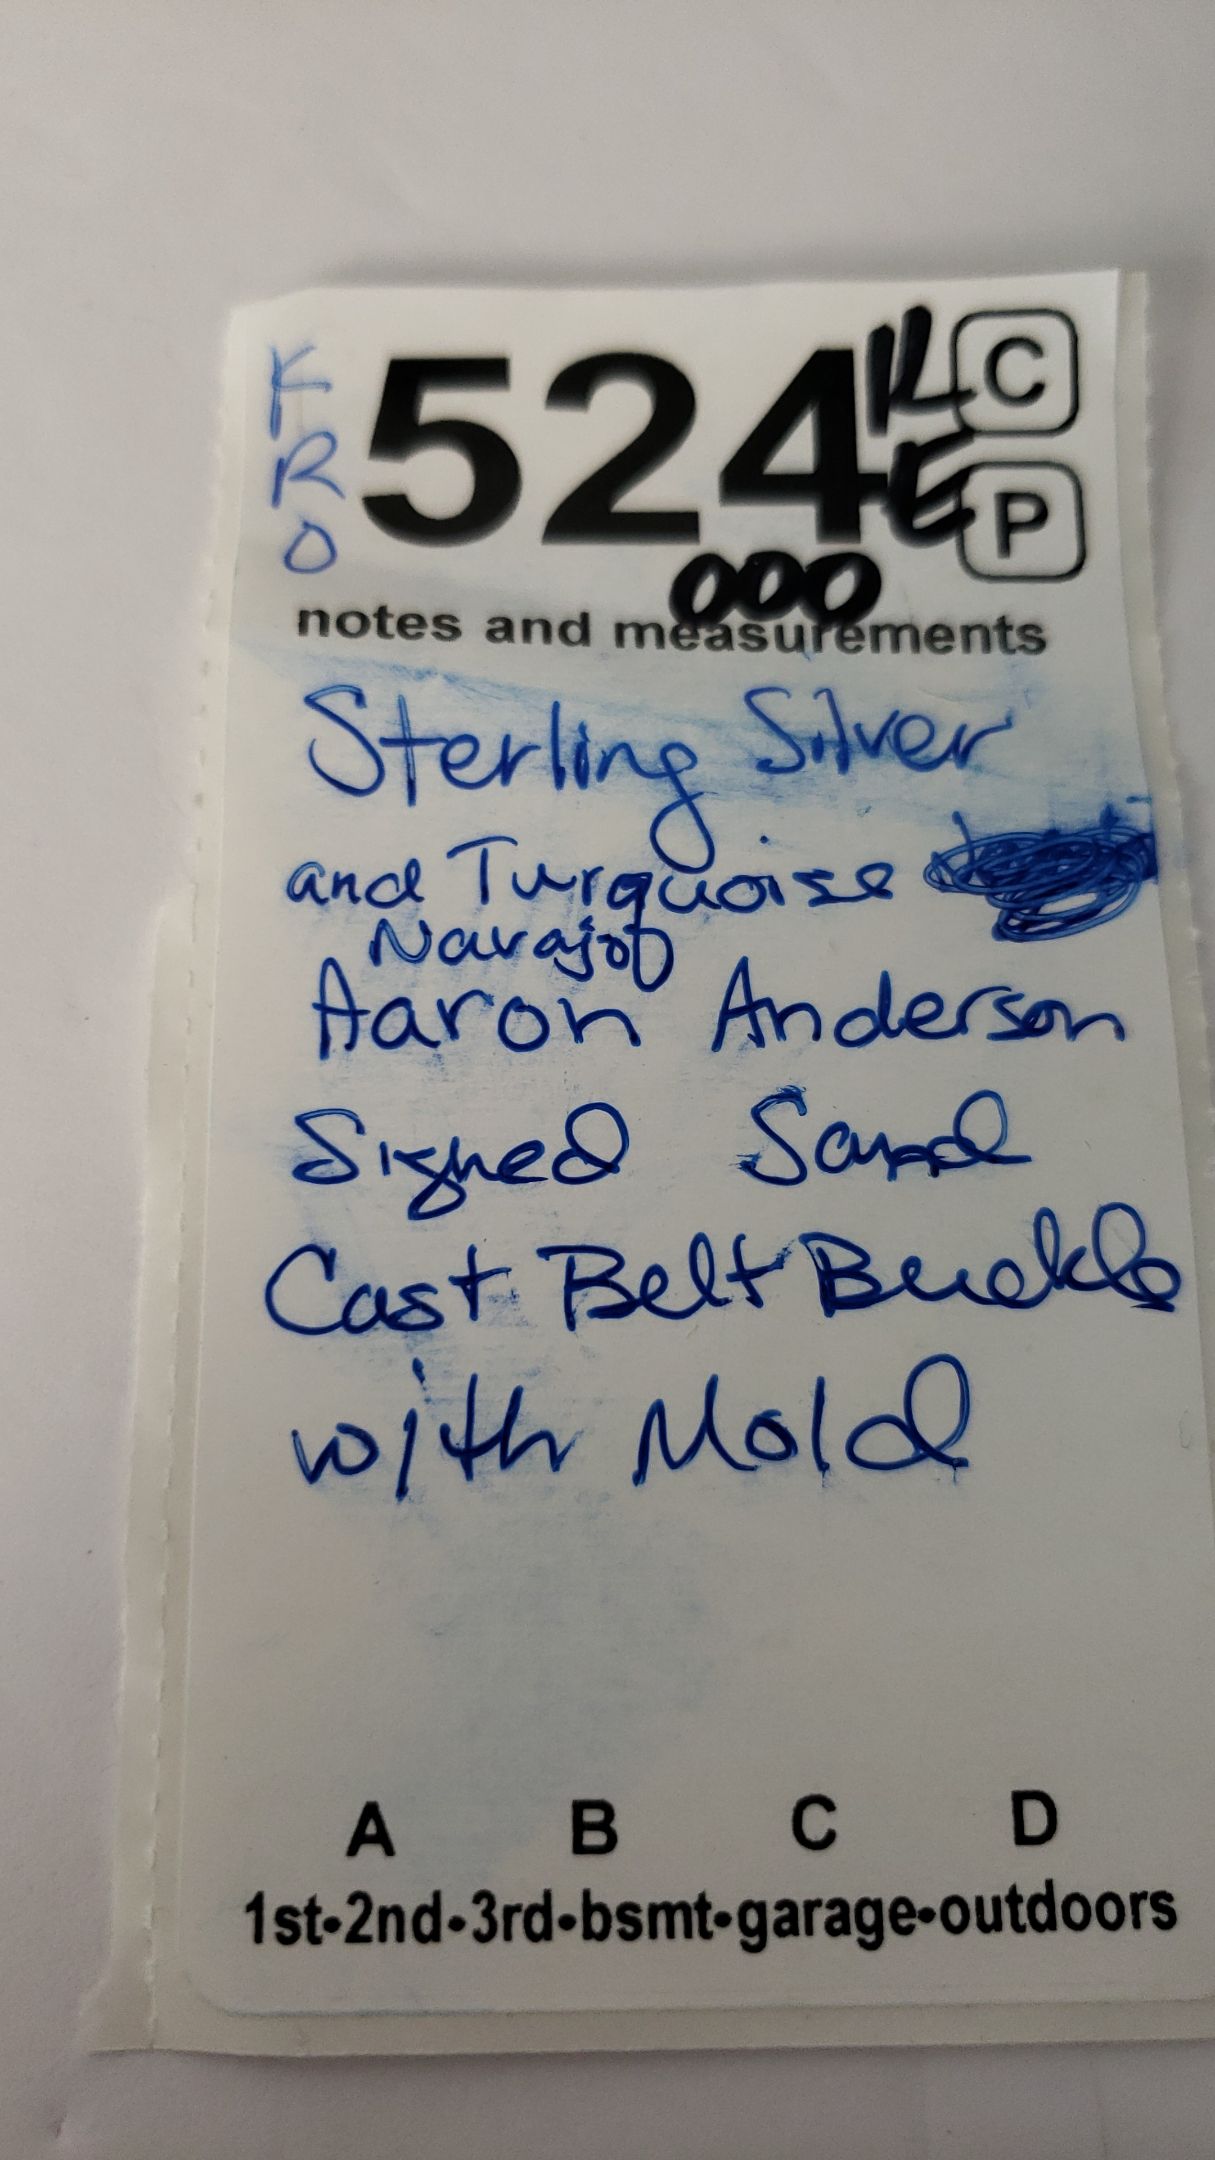 K
R
O
524
R
E
C
P
000
notes and measurements
Sterling Silver
and Turquoise
Navajo
Aaron Anderson
Signed Sand
Cast Belt Buckle
with Mold
A B C D
1st•2nd•3rd•bsmt•garage•outdoors